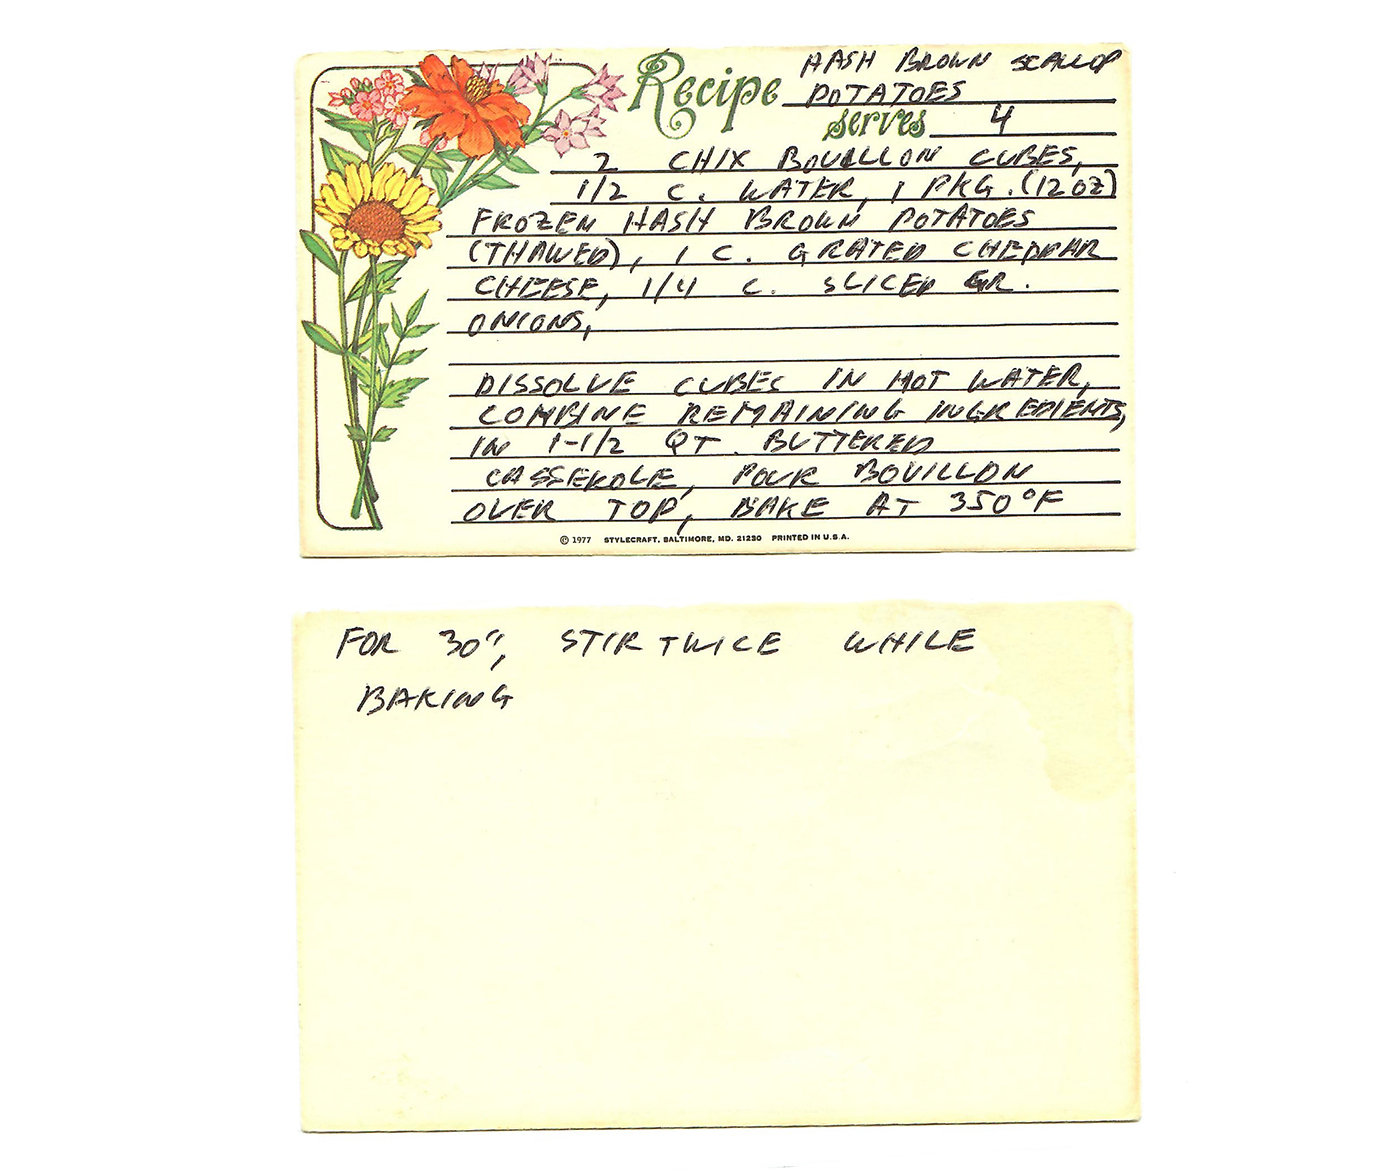 Recipe HASH BROWN SCALLOP
POTATOES
serves 4
2 CHIX BOUILLON CUBES,
1/2 C. WATER, 1 PKG. (12 OZ)
FROZEN HASH BROWN POTATOES
(THAWED), 1 C. GRATED CHEDDAR
CHEESE, 1/4 C. SLICED GR.
ONIONS,
DISSOLVE CUBES IN HOT WATER,
COMBINE REMAINING INGREDIENTS,
IN 1-1/2 QT. BUTTERED
CASSEROLE, POUR BOUILLON
OVER TOP, BAKE AT 350°F
© 1977 STYLECRAFT, BALTIMORE, MD. 21230 PRINTED IN U.S.A.
FOR 30", STIR TWICE WHILE
BAKING